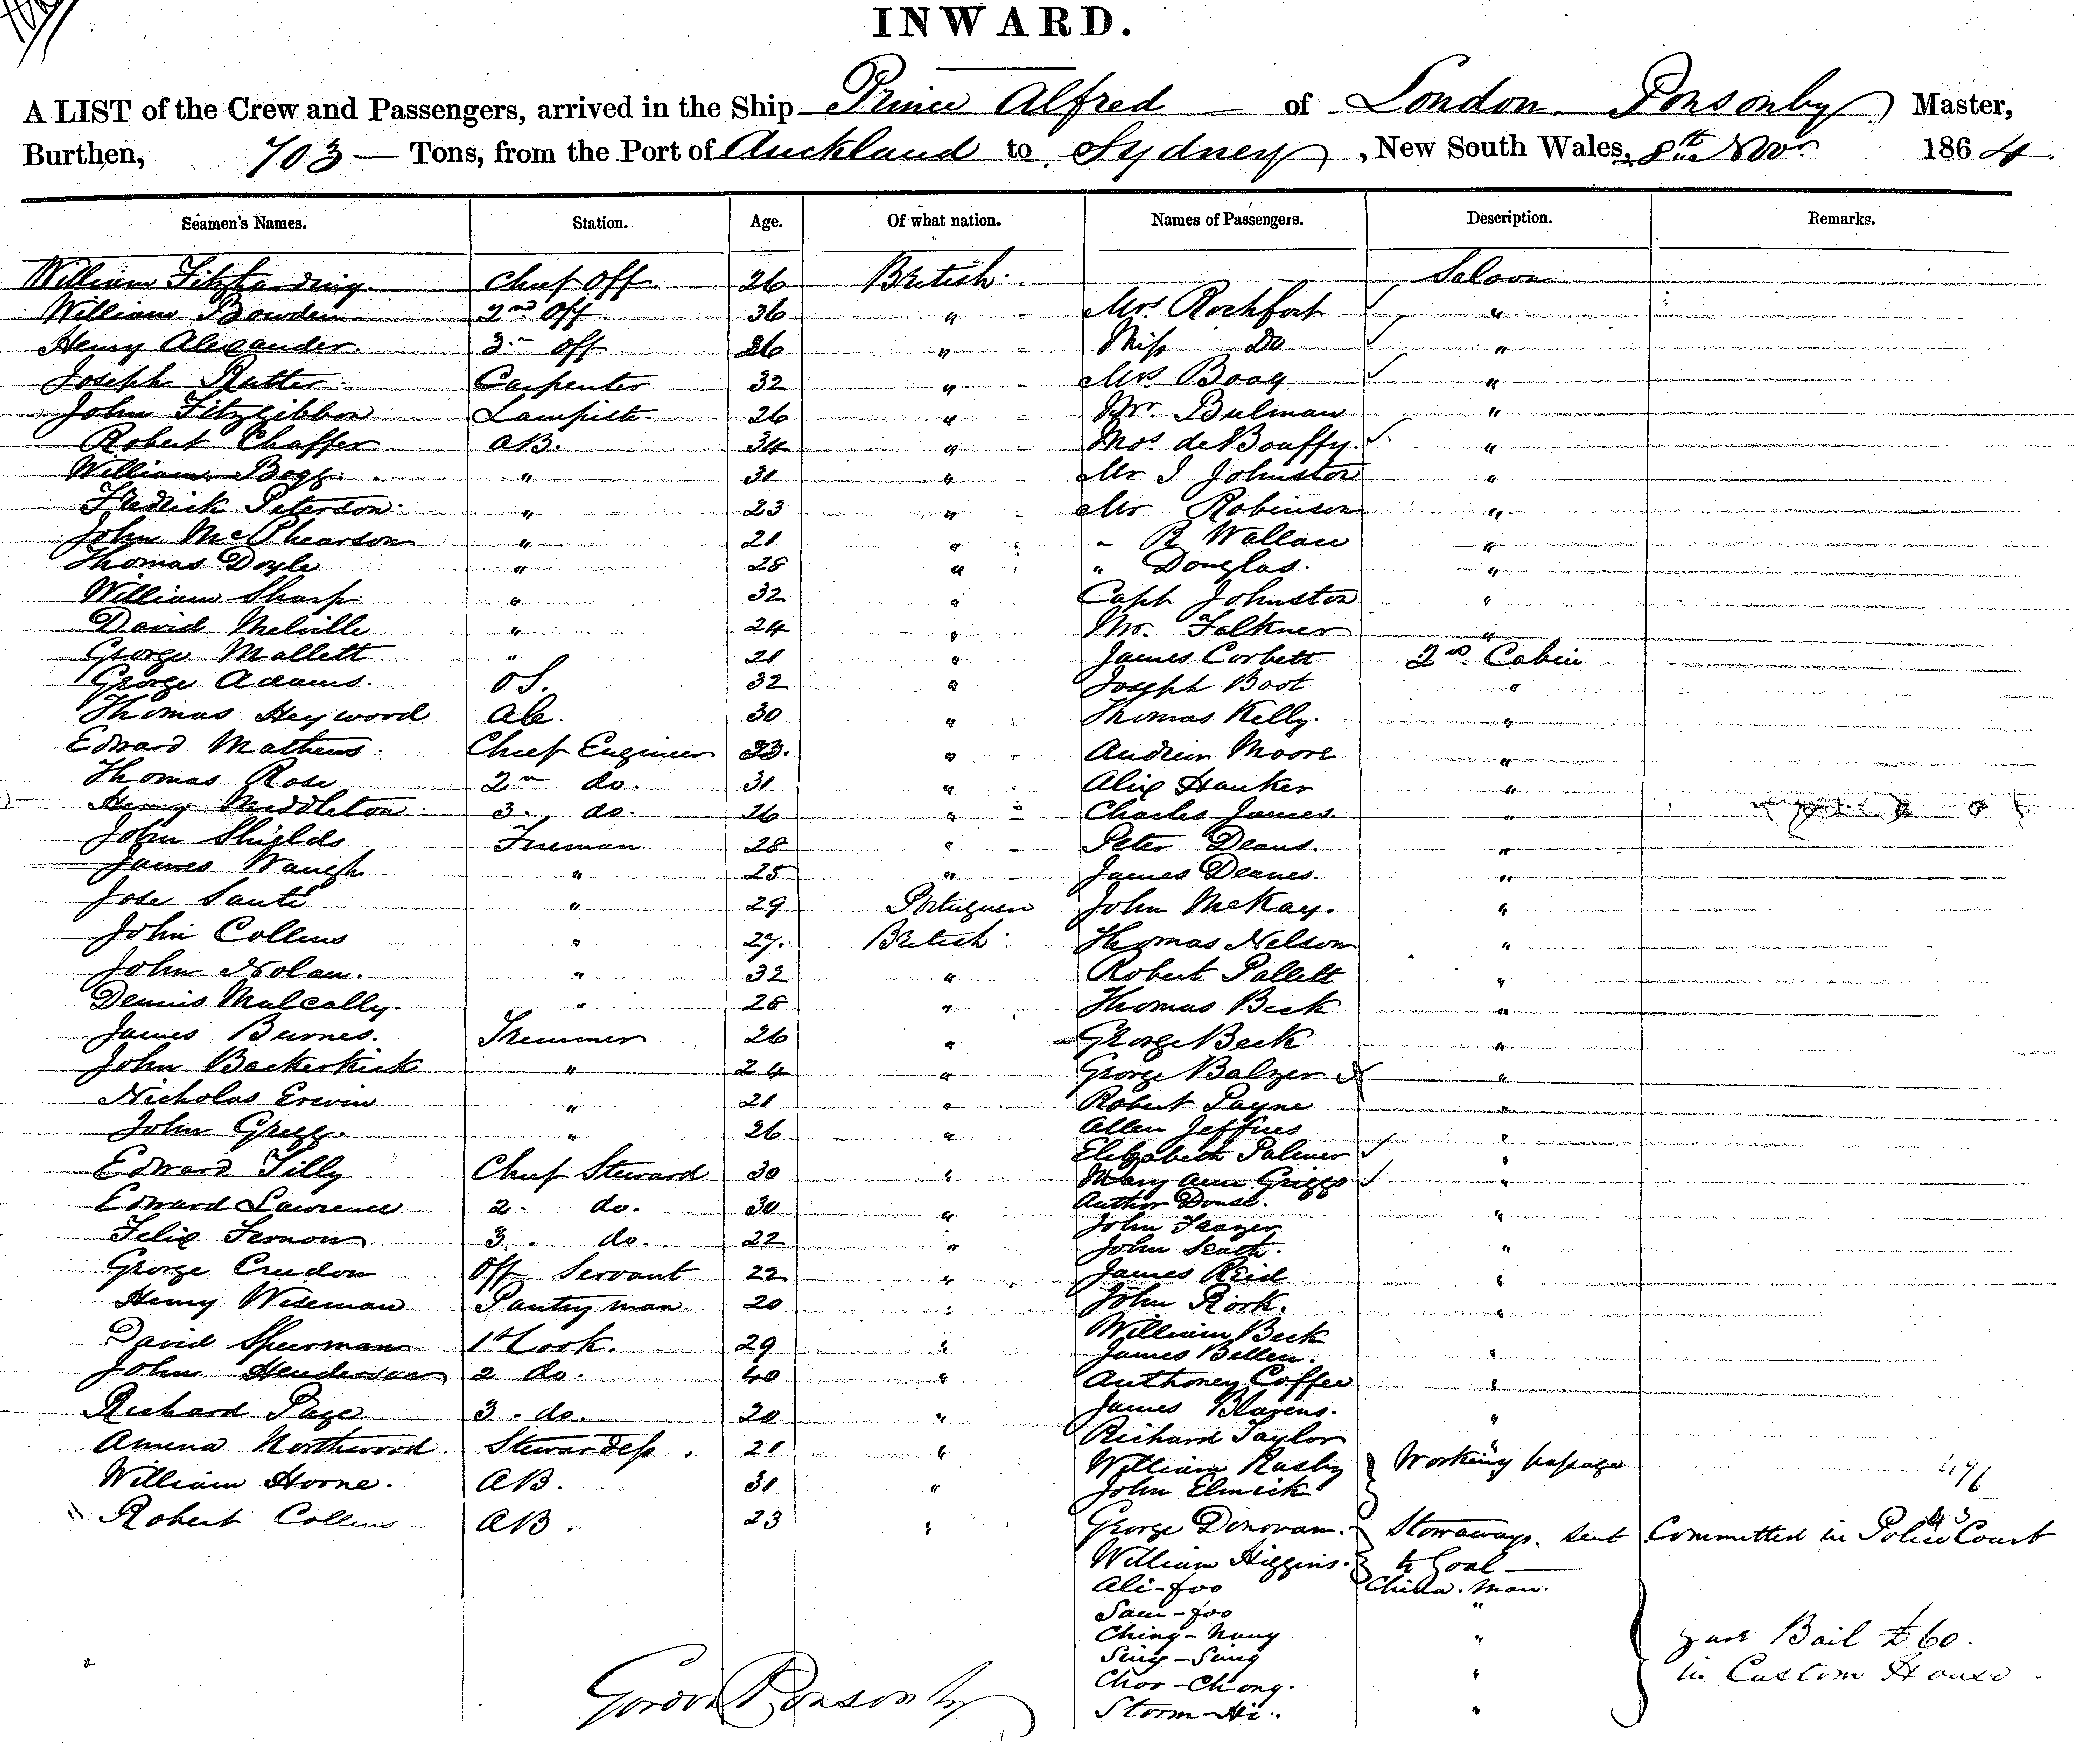 INWARD.
A LIST of the Crew and Passengers, arrived in the Ship Prince Alfred of London Ponsonby Master,
Burthen, 703 Tons, from the Port of Auckland to Sydney, New South Wales, 8th Novr 1864.
Seamen's Names. Station. Age. Of what nation. Names of Passengers. Description. Remarks.
William Fitzharding Chief Off 26 British Saloon
William Bowden 2nd Off 36 " Mrs Rochfort "
Henry Alexander 3 Off 26 " Miss Do "
Joseph Rutter Carpenter 32 " Mrs Boag "
John Fitzgibbon 26 " Mr Bulman "
Robert Chaffer AB. 34 " de Bouffy "
William Begg " 31 " Mr J Johnston "
Fredrick Peterson " 23 " Mr Robinson "
John McPhearson " 21 " " R Wallace "
Thomas Doyle " 28 " " Douglas. "
William Sharp " 32 " Capt Johnston "
David Melville " 24 " Mr. Falkner "
George Mallett " 21 " James Corbett 2nd Cabin
George Adams. OS. 32 " Joseph Boot "
Thomas Heywood AB. 30 " Thomas Kelly. "
Edward Mathews Chief Engineer 33. " Andrew Moore "
Thomas Rose 2 do. 31 " Alix Hanker "
Henry Middleton 3. do. 26 " Charles James. "
John Shields Fireman 28 " Peter Deans. "
James Waugh " 25 " James Deanes. "
Jose Santi " 29 Portuguese John McKay. "
John Collins " 27. British Thomas Nelson "
John Nolan. " 32 " Robert Pallett "
Dennis Mulcally. " 28 " Thomas Beck "
James Burnes. Tremmer 26 " George Beck "
John Beckerkick " 24 " George Balzer "
Nicholas Erevin " 21 " Robert Payne "
John Gregg. " 26 " Allen Jeffries "
Elizabeth Palmer "
Edward Tilly Chief Steward 30 " Mary Ann Griggs "
Edward Lawrence 2. do. 30 " Author Douse. "
John Frazer
Felix Fernon 3. do. 22 " John Leach. "
George Creedon Off Servant 22 " James Reid "
Henry Wiseman Pantry man 20 " John Rork. "
William Beck
David Spearman 1st Cook. 29 " James Bellen. "
John Henderson 2 do. 40 " Anthoney Coffee "
Richard Page 3. do. 20 " James Blazens. "
Richard Taylor "
Amena Northwood Stewardess. 21 " William Rusby Working passage
William Horne. AB. 31 " John Elmeik
Robert Collins AB. 23 " George Donovan. Stowaways. sent Committed in Police Court
William Higgins. to Goal
Ali-foo China. Man.
Sam-foo "
Ching-Nang "
Sing-Sing Bail £60.
Choo-Chong. " in Custom House
Storm-Hi. "
Gordon Ponsonby